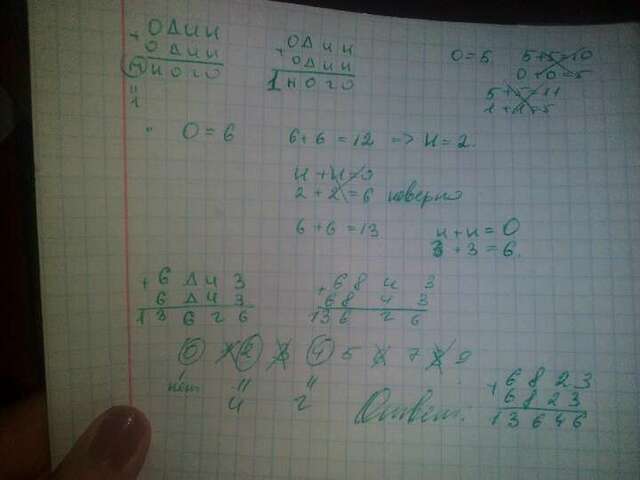 + О Д И Н
О Д И Н
М Н О Г О
"
1
+ О Д И Н
О Д И Н
1 Н О Г О
О = 5
5 + 5 = 10
0 + 0 = 5
5 + 5 = 11
1 + 1 = 5
О = 6
6 + 6 = 12 => Н = 2.
Н + Н = О
2 + 2 = 6 неверно
6 + 6 = 13
Н + Н = О
3 + 3 = 6.
+ 6 Д И 3
6 Д И 3
1 3 6 Г 6
+ 6 8 И 3
6 8 И 3
1 3 6 Г 6
0 1 2 3 4 5 6 7 8 9
нет
"
И
"
Г
Ответ.
+ 6 8 2 3
6 8 2 3
1 3 6 4 6